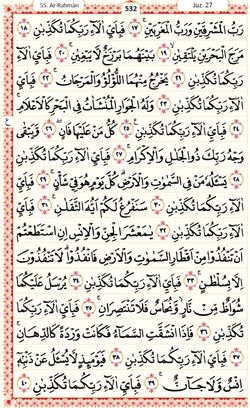 55. Ar-Rahmân 532 Juz 27
رَبُّ الْمَشْرِقَيْنِ وَرَبُّ الْمَغْرِبَيْنِ ۚ ١٧ فَبِاَيِّ اٰلَآءِ رَبِّكُمَا تُكَذِّبٰنِ ١٨
مَرَجَ الْبَحْرَيْنِ يَلْتَقِيٰنِ ۙ ١٩ بَيْنَهُمَا بَرْزَخٌ لَّا يَبْغِيٰنِ ۚ ٢٠ فَبِاَيِّ اٰلَآءِ
رَبِّكُمَا تُكَذِّبٰنِ ٢١ يَخْرُجُ مِنْهُمَا اللُّؤْلُؤُ وَالْمَرْجَانُ ۚ ٢٢ فَبِاَيِّ
اٰلَآءِ رَبِّكُمَا تُكَذِّبٰنِ ٢٣ وَلَهُ الْجَوَارِ الْمُنْشَاٰتُ فِى الْبَحْرِ كَالْاَعْلَامِ ۚ
٢٤ فَبِاَيِّ اٰلَآءِ رَبِّكُمَا تُكَذِّبٰنِ ٢٥ ع كُلُّ مَنْ عَلَيْهَا فَانٍ ۚ ٢٦ وَّيَبْقٰى
وَجْهُ رَبِّكَ ذُو الْجَلٰلِ وَالْاِكْرَامِ ۚ ٢٧ فَبِاَيِّ اٰلَآءِ رَبِّكُمَا تُكَذِّبٰنِ
٢٨ يَسْئَلُهٗ مَنْ فِى السَّمٰوٰتِ وَالْاَرْضِ ؕ كُلَّ يَوْمٍ هُوَ فِيْ شَاْنٍ ۚ ٢٩ فَبِاَيِّ
اٰلَآءِ رَبِّكُمَا تُكَذِّبٰنِ ٣٠ سَنَفْرُغُ لَكُمْ اَيُّهَ الثَّقَلٰنِ ۚ ٣١ فَبِاَيِّ
اٰلَآءِ رَبِّكُمَا تُكَذِّبٰنِ ٣٢ يٰمَعْشَرَ الْجِنِّ وَالْاِنْسِ اِنِ اسْتَطَعْتُمْ
اَنْ تَنْفُذُوْا مِنْ اَقْطَارِ السَّمٰوٰتِ وَالْاَرْضِ فَانْفُذُوْا ؕ لَا تَنْفُذُوْنَ
اِلَّا بِسُلْطٰنٍ ۚ ٣٣ فَبِاَيِّ اٰلَآءِ رَبِّكُمَا تُكَذِّبٰنِ ٣٤ يُرْسَلُ عَلَيْكُمَا
شُوَاظٌ مِّنْ نَّارٍ ۙ وَّنُحَاسٌ فَلَا تَنْتَصِرَانِ ۚ ٣٥ فَبِاَيِّ اٰلَآءِ رَبِّكُمَا
تُكَذِّبٰنِ ٣٦ فَاِذَا انْشَقَّتِ السَّمَآءُ فَكَانَتْ وَرْدَةً كَالدِّهَانِ ۚ
٣٧ فَبِاَيِّ اٰلَآءِ رَبِّكُمَا تُكَذِّبٰنِ ٣٨ فَيَوْمَئِذٍ لَّا يُسْئَلُ عَنْ ذَنْۢبِهٖٓ
اِنْسٌ وَّلَا جَآنٌّ ۚ ٣٩ فَبِاَيِّ اٰلَآءِ رَبِّكُمَا تُكَذِّبٰنِ ٤٠